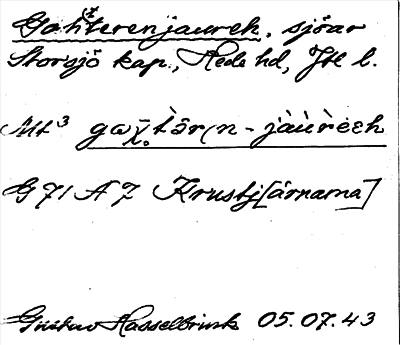 Gåhterenjaureh, sjöar
Storsjö kap., Hede hd, Jtl l.
Mt³ gɷχ̄.tə̀rən - jàùrèεh
G 71 A 7 Krustj[ärnarna]
Gustav Hasselbrink 05.07.43